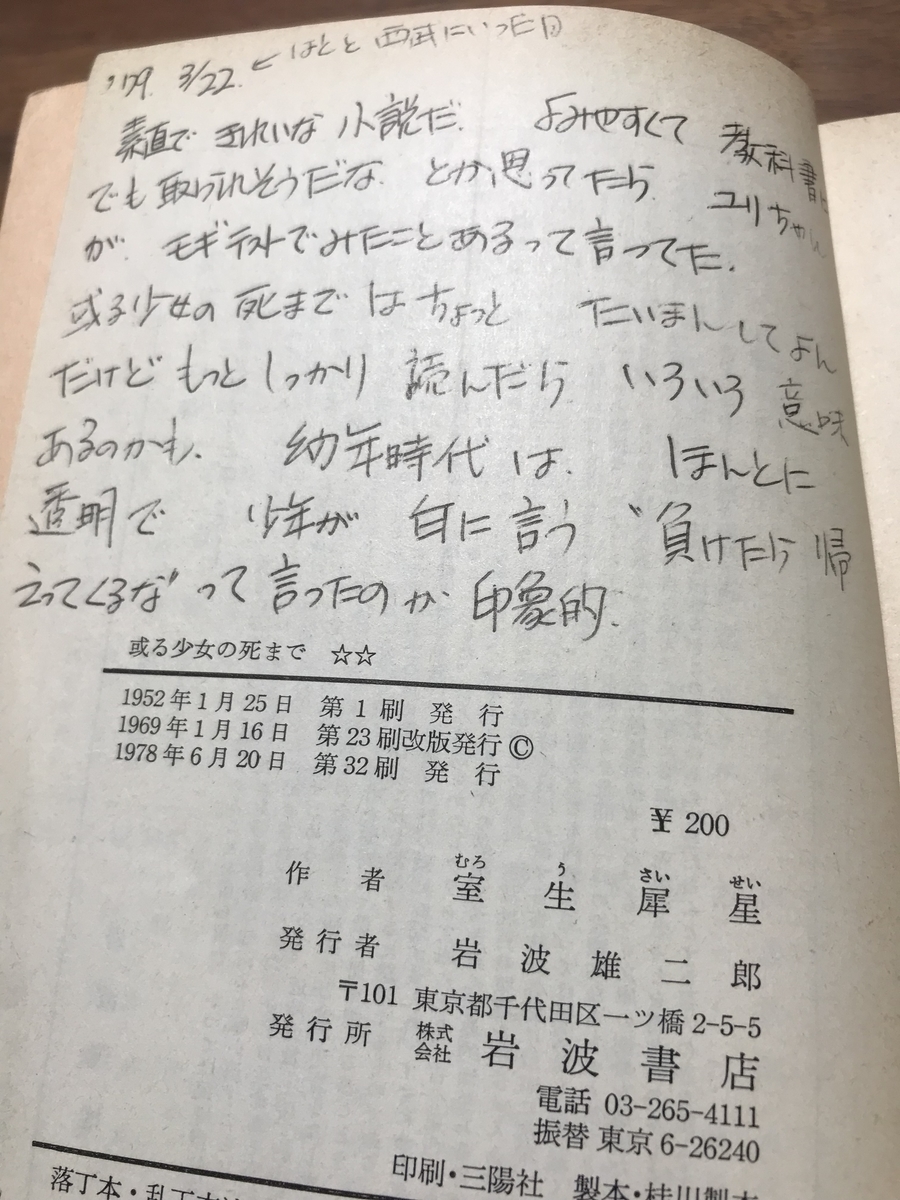 '79. 3/22. ← はとと 西武にいった日
素直で きれいな 小説だ. よみやすくて 教科書に
でも 取られそうだな. とか思ってたら ユリちゃん
が. モギテストでみたことあるって言ってた.
或る少女の 死まで は ちょっと たいまんしてよん
だけど もっと しっかり 読んだら いろいろ 意味
あるのかも. 幼年時代 は. ほんとに
透明で 少年が 白に 言う “負けたら 帰
えってくるな” って 言ったのが 印象的.
或る少女の死まで ☆☆
1952年1月25日 第1刷発行
1969年1月16日 第23刷改版発行 ©
1978年6月20日 第32刷発行
¥ 200
作者 室生犀星
むろ う さい せい
発行者 岩波雄二郎
〒101 東京都千代田区一ツ橋2-5-5
発行所 株式会社 岩波書店
電話 03-265-4111
振替 東京6-26240
印刷・三陽社 製本・桂川製本
落丁本・乱丁本